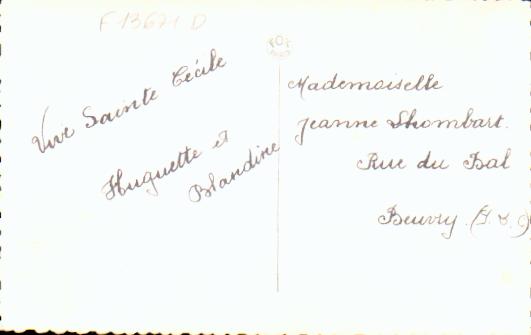 F 13671 D
Vive Sainte Cécile
Huguette et
Blandine
Mademoiselle
Jeanne Shombart.
Rue du Bal
Beuvry